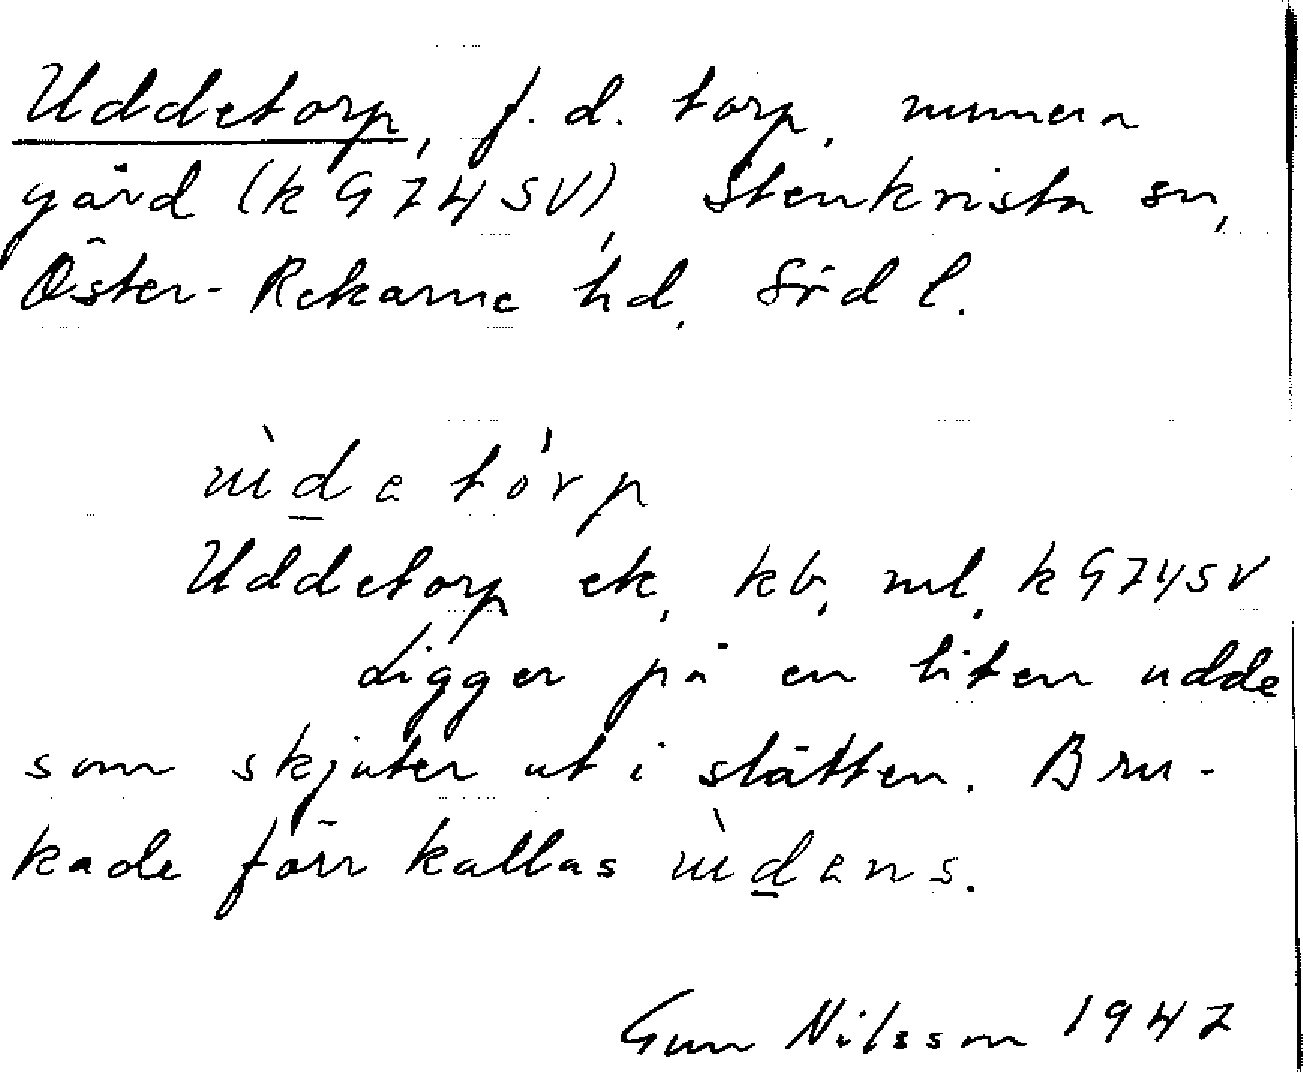 Uddetorp, f.d. torp, numera
gård (k G74SV), Stenkvista sn,
Öster-Rekarne hd, Södl.
Uddetorp ek, kb, ml, k G74SV
Ligger på en liten udde
som skjuter ut i slätten. Bru-
kade förr kallas
Gun Nilsson 1947